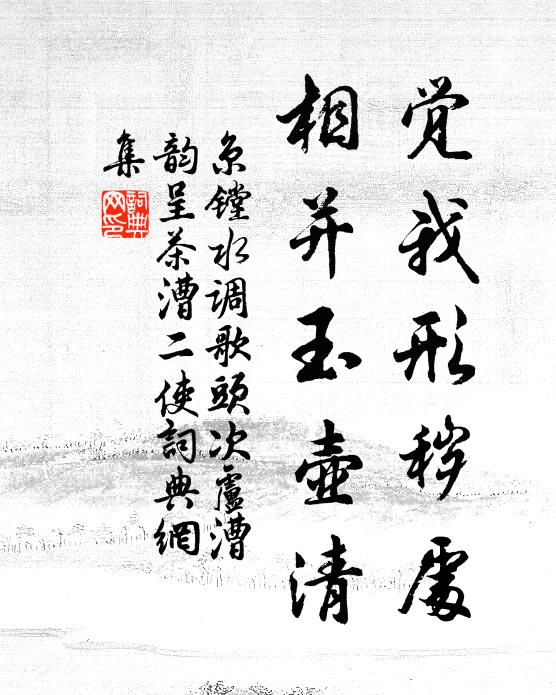 觉我形秽处
相并玉壶清
京镗水调歌头次卢漕
韵呈茶漕二使词典網
集
詞典
网印